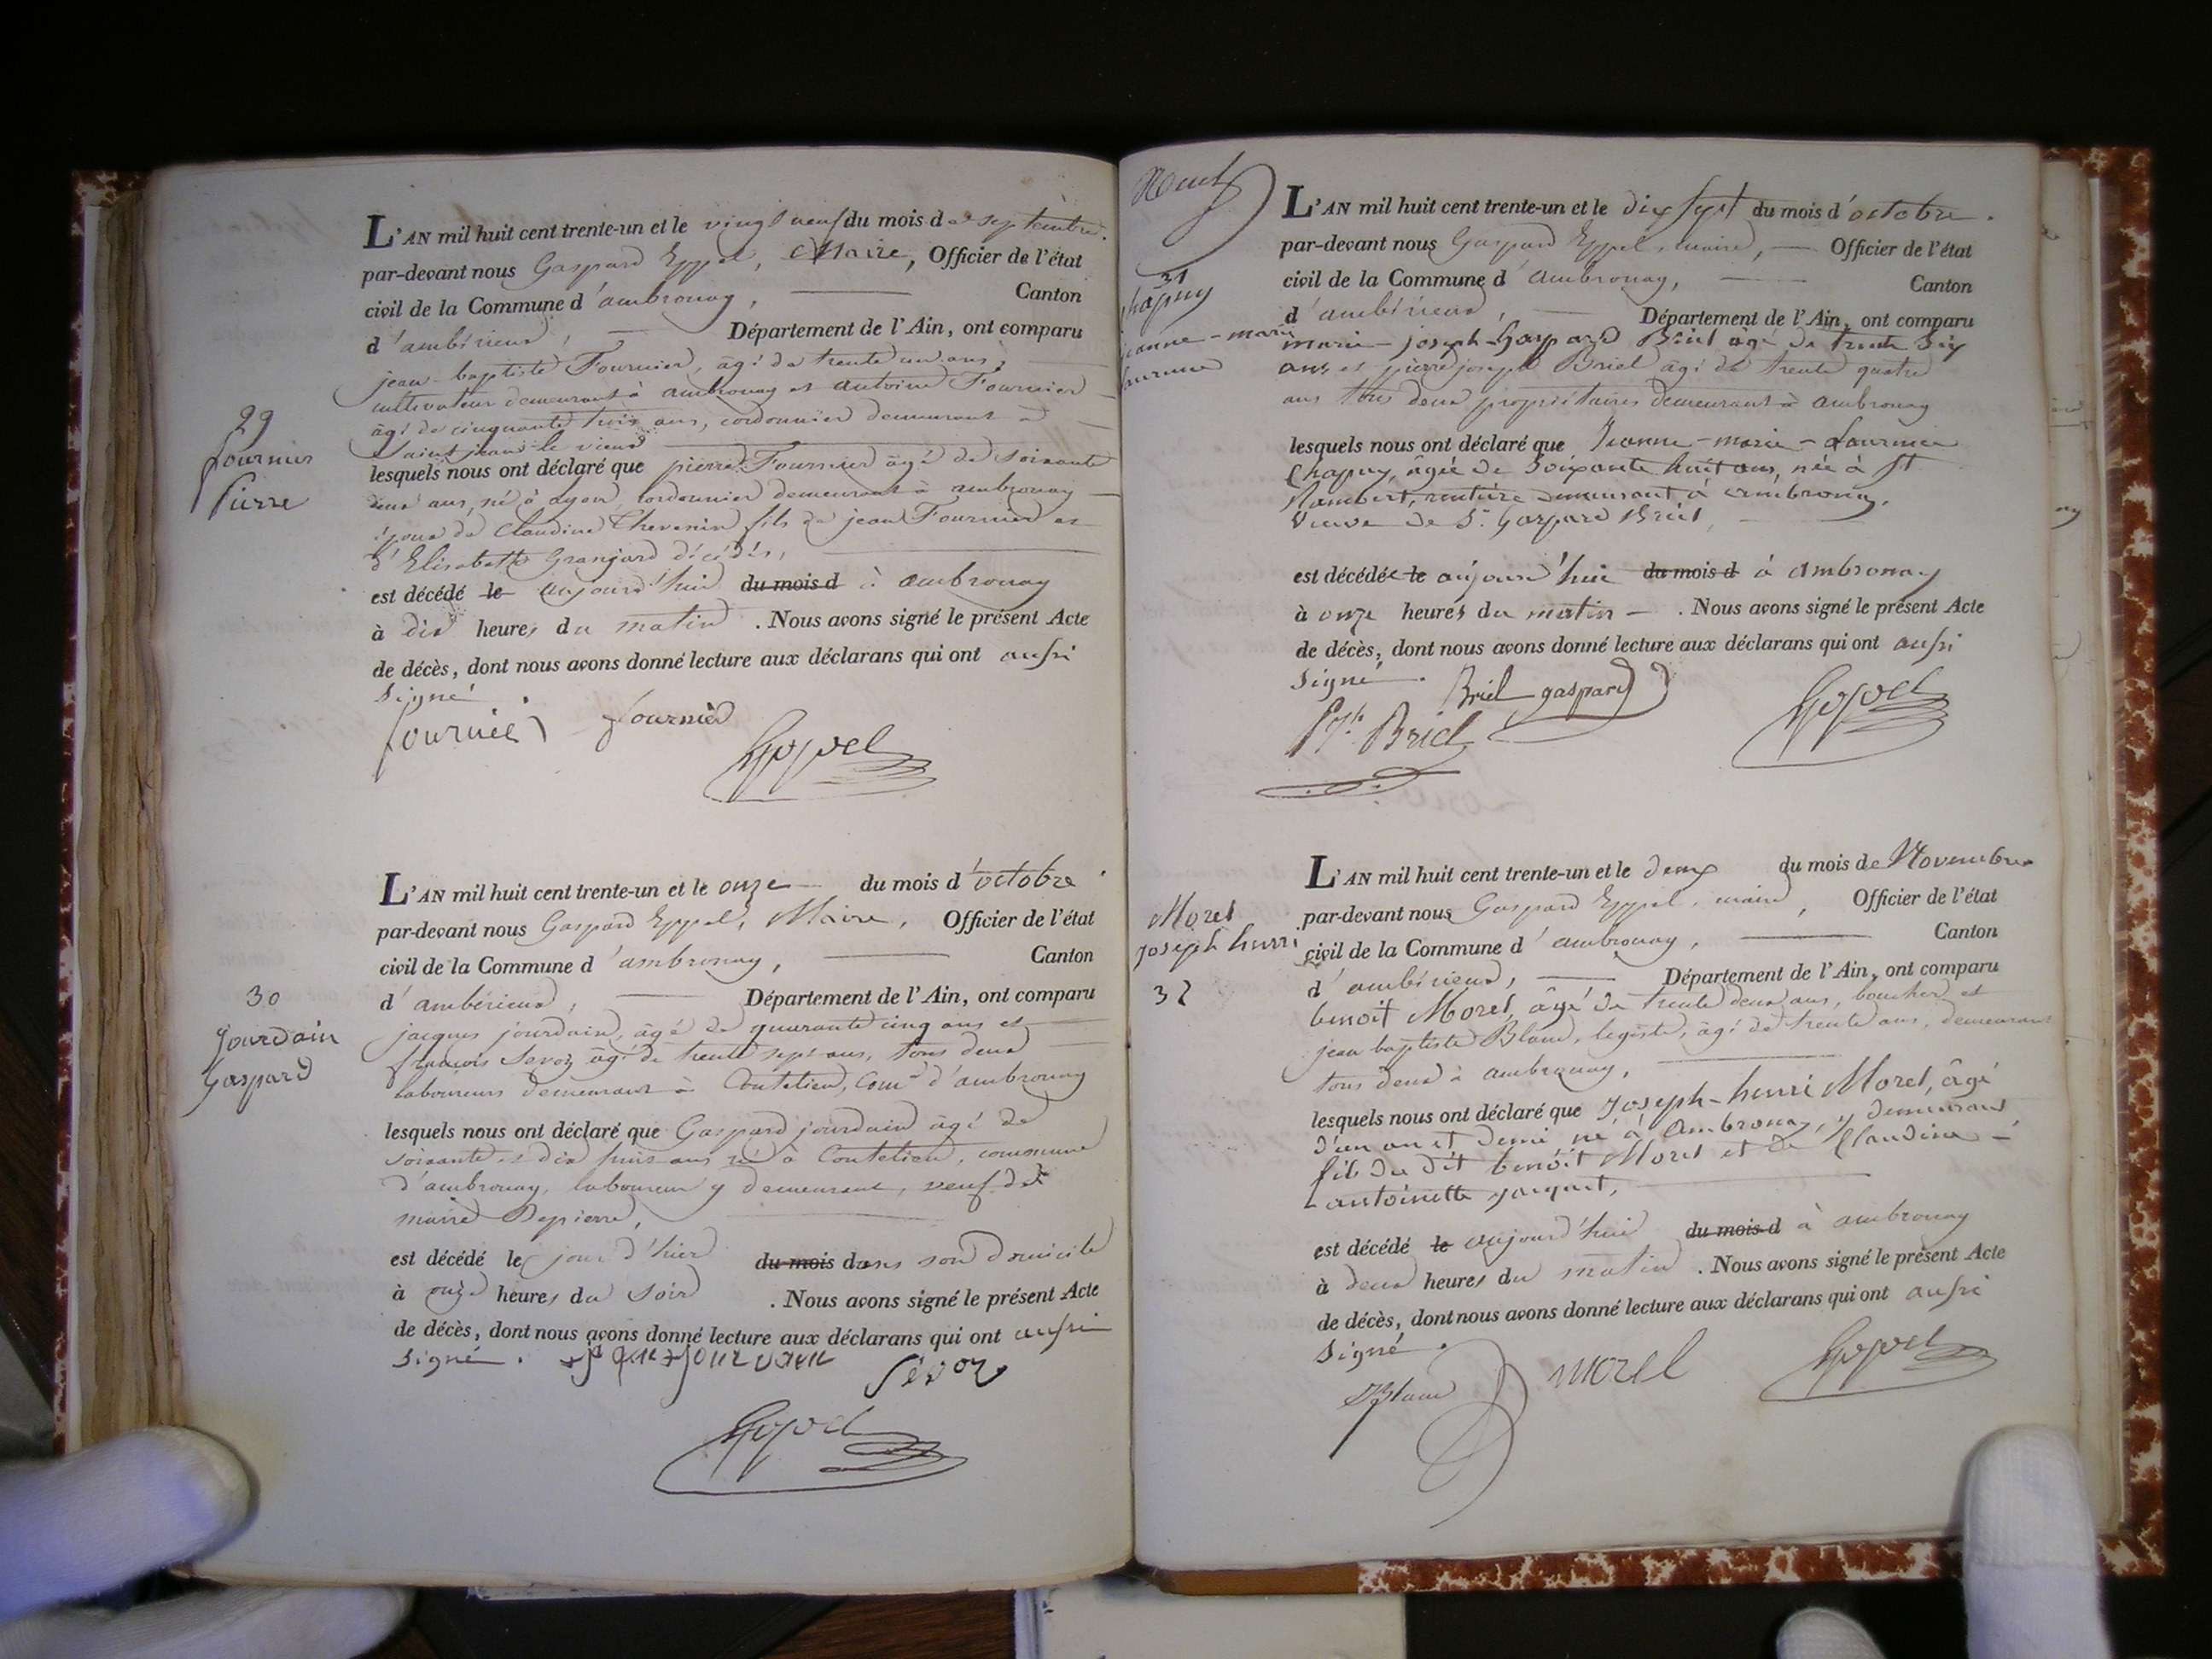 29
fournier
Pierre
L'AN mil huit cent trente-un et le vingt neuf du mois de septembre.
par-devant nous Gaspard Eppel, Maire, Officier de l'état
civil de la Commune d'ambronay, Canton
d'ambérieux, Département de l'Ain, ont comparu
jean-baptiste Fournier, âgé de trente un ans,
cultivateur demeurant à ambronay et antoine Fournier
âgé de cinquante trois ans, cordonnier demeurant à
Saint jean-le vieux
lesquels nous ont déclaré que pierre Fournier âgé de soixante
deux ans, né à cordonnier demeurant à ambronay
époux de Claudine Thevenin fils de jean Fournier et
d'Elisabeth Granjard décédés,
est décédé le aujourd'hui du mois d à ambronay
à dix heures du matin. Nous avons signé le présent Acte
de décès, dont nous avons donné lecture aux déclarans qui ont aussi
signé
fournier fournier
Eppel
30
jourdain
Gaspard
L'AN mil huit cent trente-un et le onze du mois d'octobre
par-devant nous Gaspard Eppel, Maire, Officier de l'état
civil de la Commune d'ambronay, Canton
d'ambérieux, Département de l'Ain, ont comparu
jacques jourdain, âgé de quarante cinq ans et
françois Sevoz âgé de trente sept ans, tous deux
laboureurs demeurant à Coutelieu, Com.e d'ambronay
lesquels nous ont déclaré que Gaspard jourdain âgé de
soixante et dix huit ans né à Coutelieu, commune
d'ambronay, laboureur y demeurant, veuf de
marie Depierre,
est décédé le jour d'hier du mois dans son domicile
à onze heures du soir. Nous avons signé le présent Acte
de décès, dont nous avons donné lecture aux déclarans qui ont aussi
signé.
Sevoz
Eppel
31
Chapuy
jeanne-marie
laurence
L'AN mil huit cent trente-un et le dix sept du mois d'octobre.
par-devant nous Gaspard Eppel, maire, Officier de l'état
civil de la Commune d'ambronay, Canton
d'ambérieux, Département de l'Ain, ont comparu
marie-joseph-Gaspard Briel âgé de trente six
ans et pierre joseph Briel âgé de trente quatre
ans tous deux propriétaires demeurant à ambronay
lesquels nous ont déclaré que Jeanne-marie-Laurence
Chapuy, âgée de soixante huit ans, née à St
Rambert, rentière demeurant à ambronay,
veuve de Sr. Gaspard Briel,
est décédée le aujourd'hui du mois d à Ambronay
à onze heures du matin. Nous avons signé le présent Acte
de décès, dont nous avons donné lecture aux déclarans qui ont aussi
signé.
Briel gaspard
Pjh Briel
Eppel
Morel
joseph henri
32
L'AN mil huit cent trente-un et le deux du mois de Novembre
par-devant nous Gaspard Eppel, maire, Officier de l'état
civil de la Commune d'ambronay, Canton
d'ambérieux, Département de l'Ain, ont comparu
benoit Morel, âgé de trente deux ans, boucher et
jean baptiste Blanc, légiste, âgé de trente ans, demeurant
tous deux à ambronay,
lesquels nous ont déclaré que Joseph-henri Morel, âgé
d'un an et demi né à Ambronay, y demeurant
fils du dit benoît Morel et de Claudine-
antoinette jacquet,
est décédé le aujourd'hui du mois d à ambronay
à deux heures du matin. Nous avons signé le présent Acte
de décès, dont nous avons donné lecture aux déclarans qui ont aussi
signé.
Blanc morel
Eppel